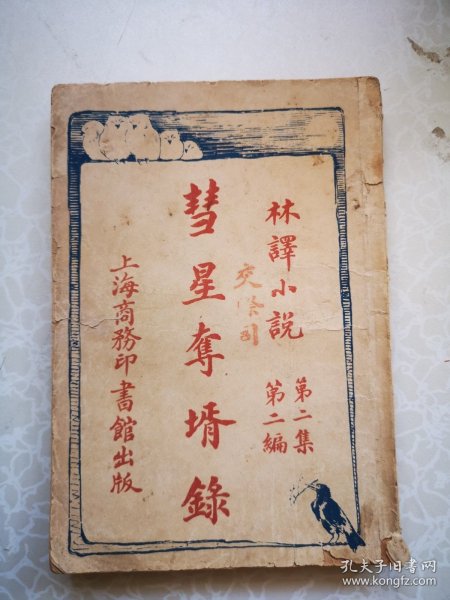 林譯小説
第二集
第二編
彗星奪壻錄
上海商務印書館出版
孔夫子旧书网
www.kongfz.com